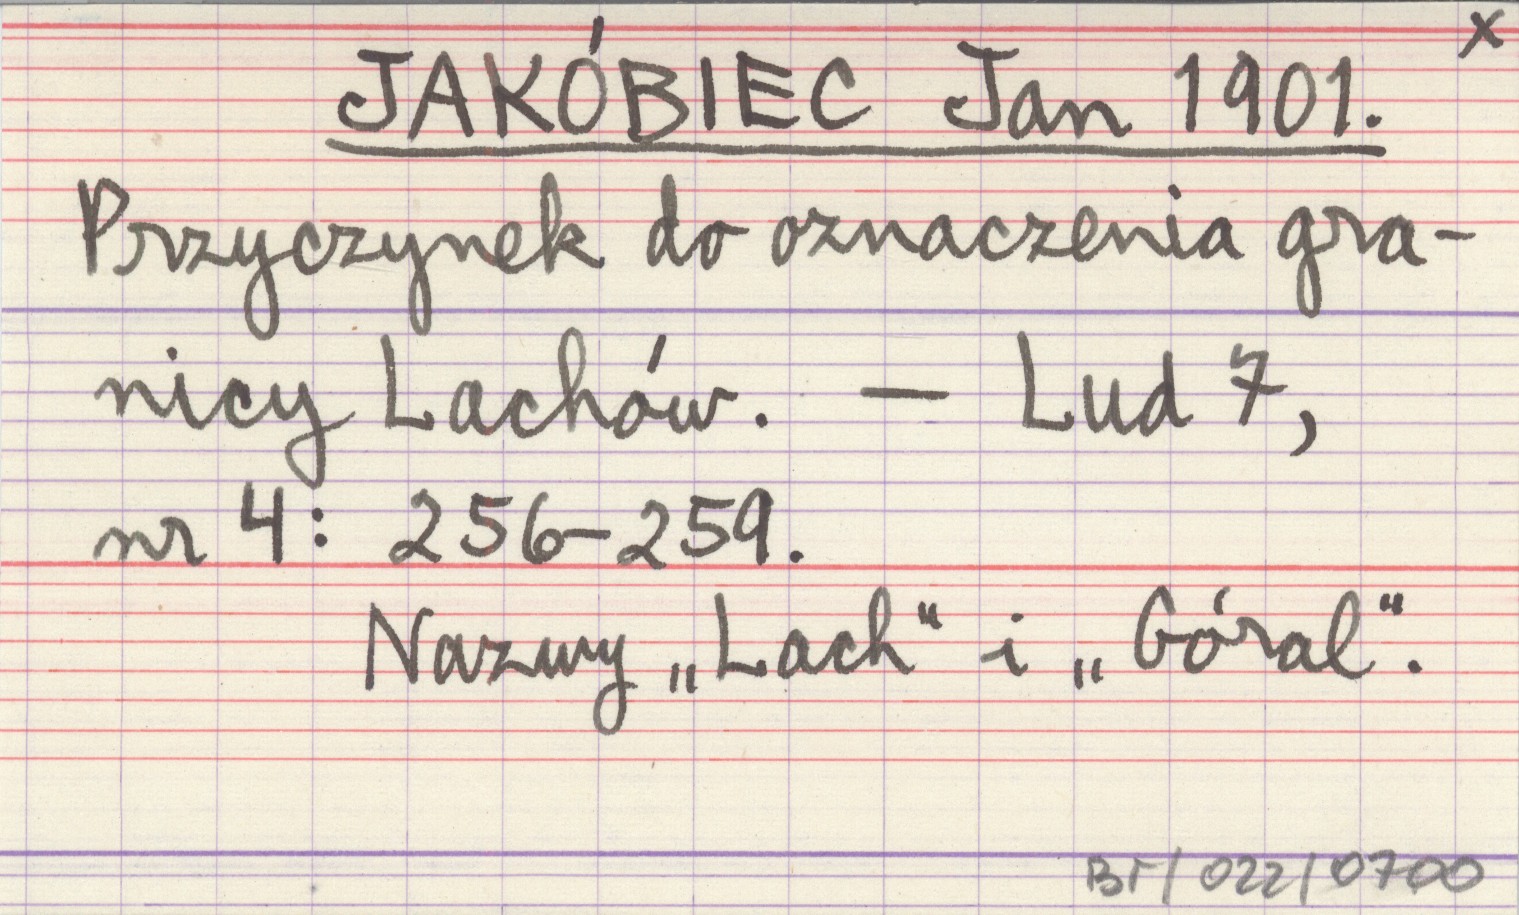 x
JAKÓBIEC Jan 1901.
Przyczynek do oznaczenia gra-
nicy Lachów. — Lud 7,
nr 4: 256-259.
Nazwy „Lach“ i „Góral“.
BT/022/0700